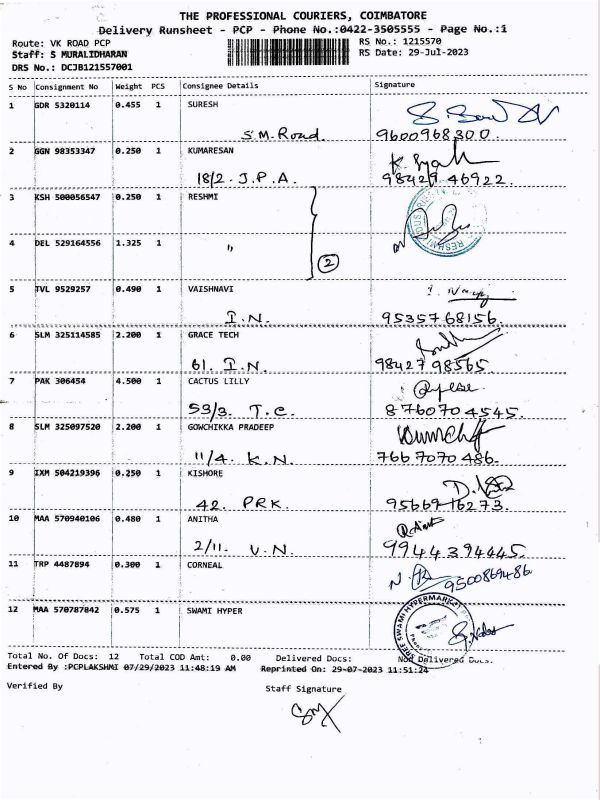 THE PROFESSIONAL COURIERS, COIMBATORE
Delivery Runsheet - PCP - Phone No.:0422-3505555 - Page No.:1
Route: VK ROAD PCP RS No.: 1215570
Staff: S MURALIDHARAN RS Date: 29-Jul-2023
DRS No.: DCJB121557001
S No Consignment No Weight PCS Consignee Details Signature
1 GDR 5320114 0.455 1 SURESH
S.M. Road. 9600968300.
2 GGN 98353347 0.250 1 KUMARESAN
18/2. J.P.A. 98429 46922.
3 KSH 500056547 0.250 1 RESHMI
4 DEL 529164556 1.325 1 "
2
5 TVL 9529257 0.490 1 VAISHNAVI
I.N. 9535768156.
6 SLM 325114585 2.200 1 GRACE TECH
61. I.N. 98427 98565.
7 PAK 306454 4.500 1 CACTUS LILLY
53/3. T.C. 8760704545.
8 SLM 325097520 2.200 1 GOWCHIKKA PRADEEP
11/4. K.N. 7667070486.
9 IXM 504219396 0.250 1 KISHORE
42. PRK. 9566916273.
10 MAA 570940106 0.480 1 ANITHA
2/11. V.N. 9944394445.
11 TRP 4487894 0.300 1 CORNEAL
9500869486
12 MAA 570787842 0.575 1 SWAMI HYPER
SREE SWAMI HYPERMARKET
Total No. Of Docs: 12 Total COD Amt: 0.00 Delivered Docs: Non Delivered Docs.
Entered By :PCPLAKSHMI 07/29/2023 11:48:19 AM Reprinted On: 29-07-2023 11:51:24
Verified By Staff Signature